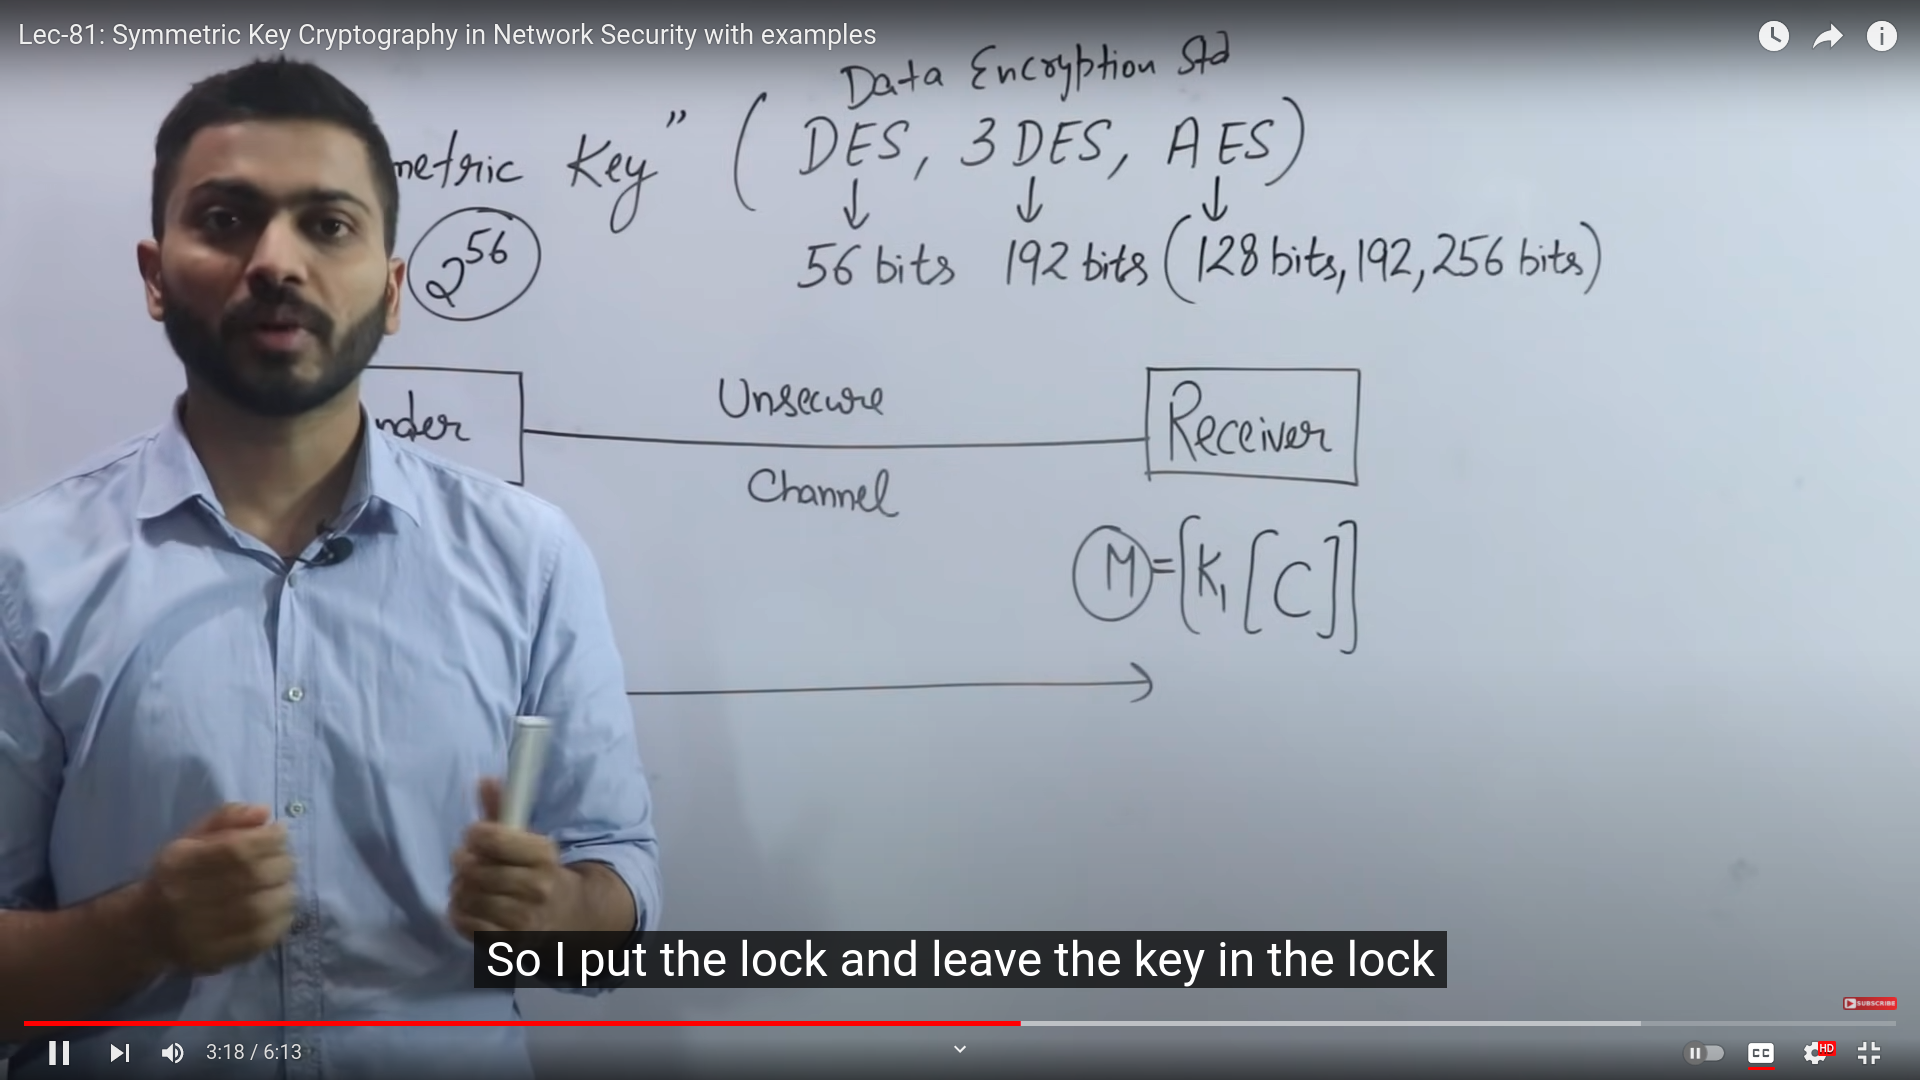 Lec-81: Symmetric Key Cryptography in Network Security with examples
Data Encryption Std
metric Key" ( DES, 3DES, AES)
↓ ↓ ↓
2^56 56 bits 192 bits (128 bits, 192, 256 bits)
nder Unsecure Receiver
Channel
M = [K₁[C]]
So I put the lock and leave the key in the lock
SUBSCRIBE
3:18 / 6:13 CC HD